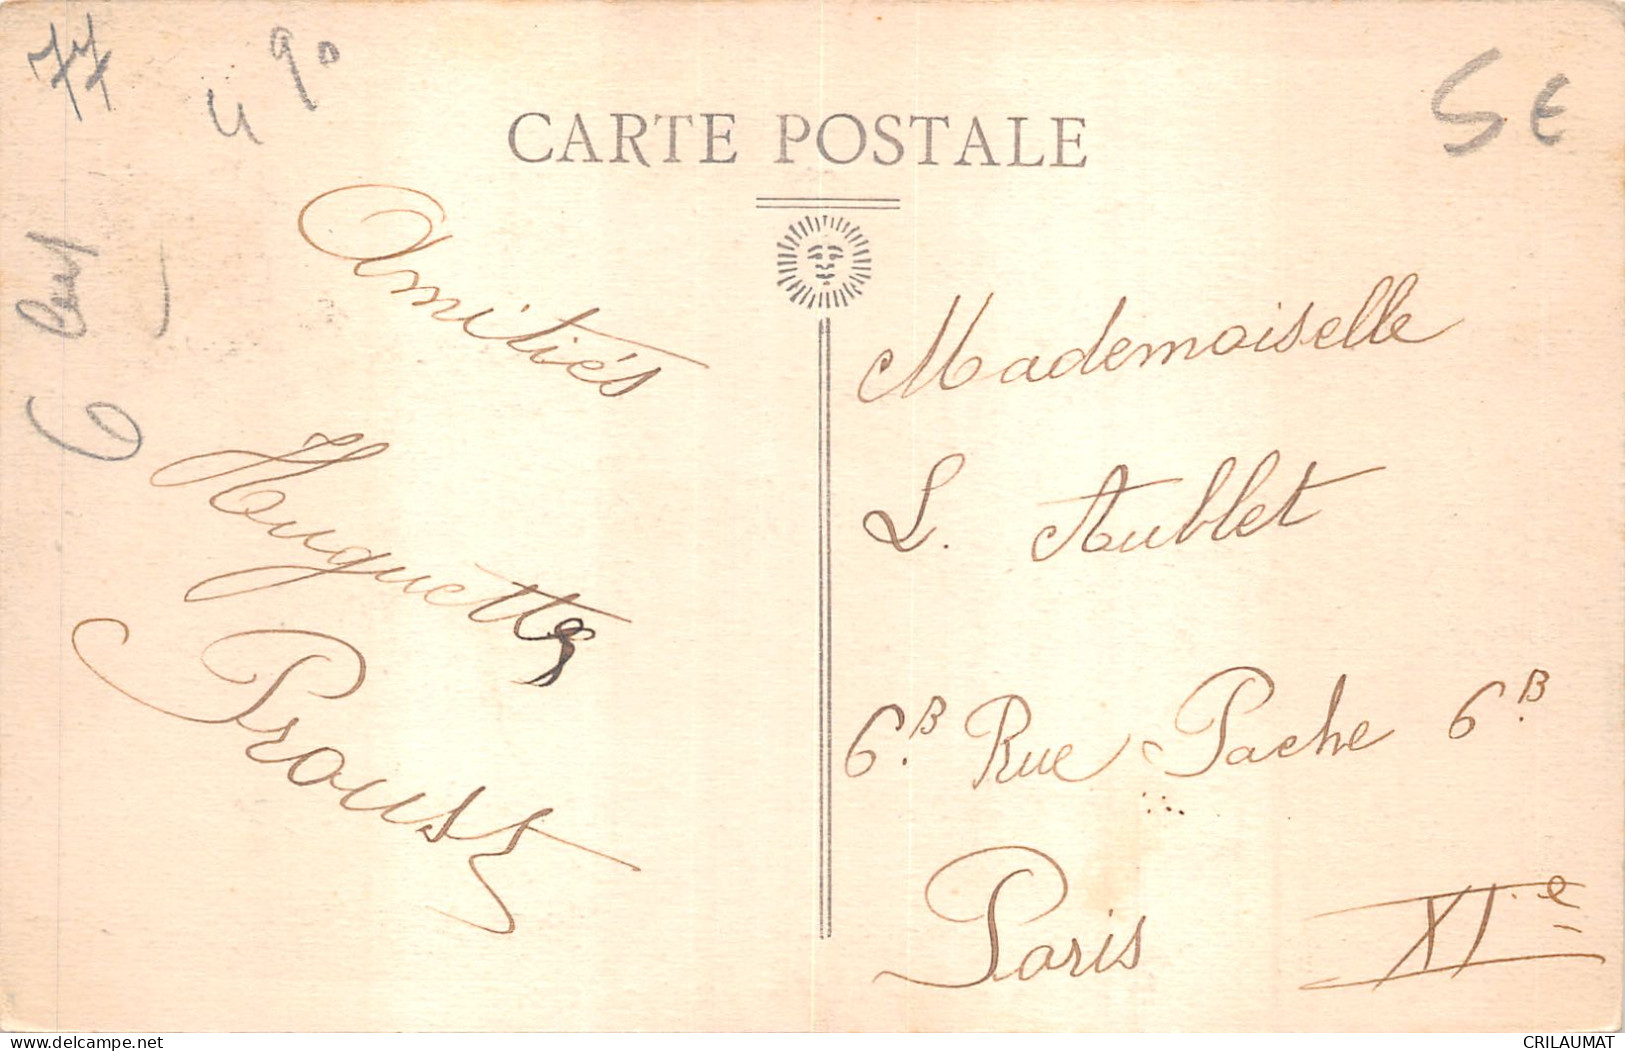 77
4 90
5 €
CARTE POSTALE
6
Amitiés
Huguette
Proust
Mademoiselle
L. Aublet
6.B Rue Pache 6.B
Paris XIe
www.delcampe.net
CRILAUMAT